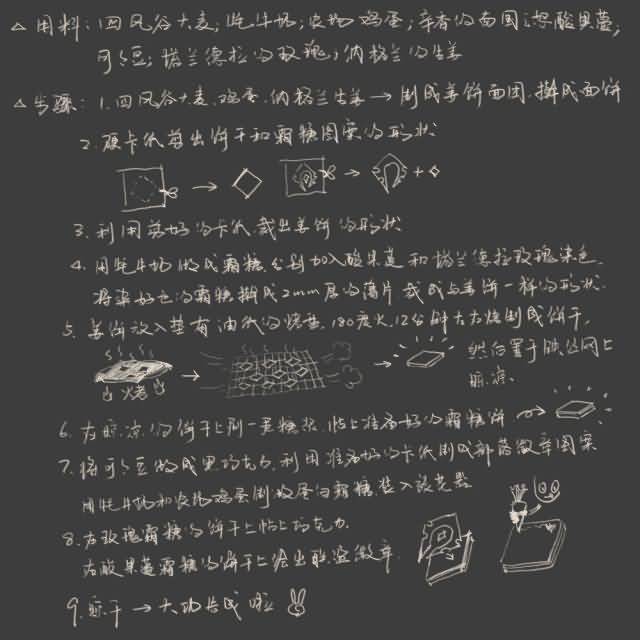 △ 用料: 四风谷大麦; 牦牛奶; 农场鸡蛋; 辛香的南国凉酸果蔓;
可可豆; 诺兰德拉的玫瑰; 纳格兰的生姜
△ 步骤: 1. 四风谷大麦、鸡蛋、纳格兰生姜 → 制成姜饼面团, 擀成面饼
2. 硬卡纸剪出饼干和霜糖图案的形状
3. 利用剪好的卡纸裁出姜饼的形状
4. 用牦牛奶做成霜糖, 分别加入酸果蔓和诺兰德拉玫瑰染色,
将染好色的霜糖擀成2mm厚的薄片, 裁成与姜饼一样的形状.
5. 姜饼放入垫有油纸的烤盘, 180度火, 12分钟左右烧制成饼干,
然后置于铁丝网上
晾凉、
火烤
6. 在晾凉的饼干上刷一层糖浆, 贴上准备好的霜糖饼
7. 将可可豆做成黑巧克力, 利用准备好的卡纸制成部落徽章图案
用牦牛奶和农场鸡蛋制做蛋白霜糖, 装入裱花器
8. 在玫瑰霜糖的饼干上贴上巧克力
在酸果蔓霜糖的饼干上绘出联盟徽章.
9. 晾干 → 大功告成啦